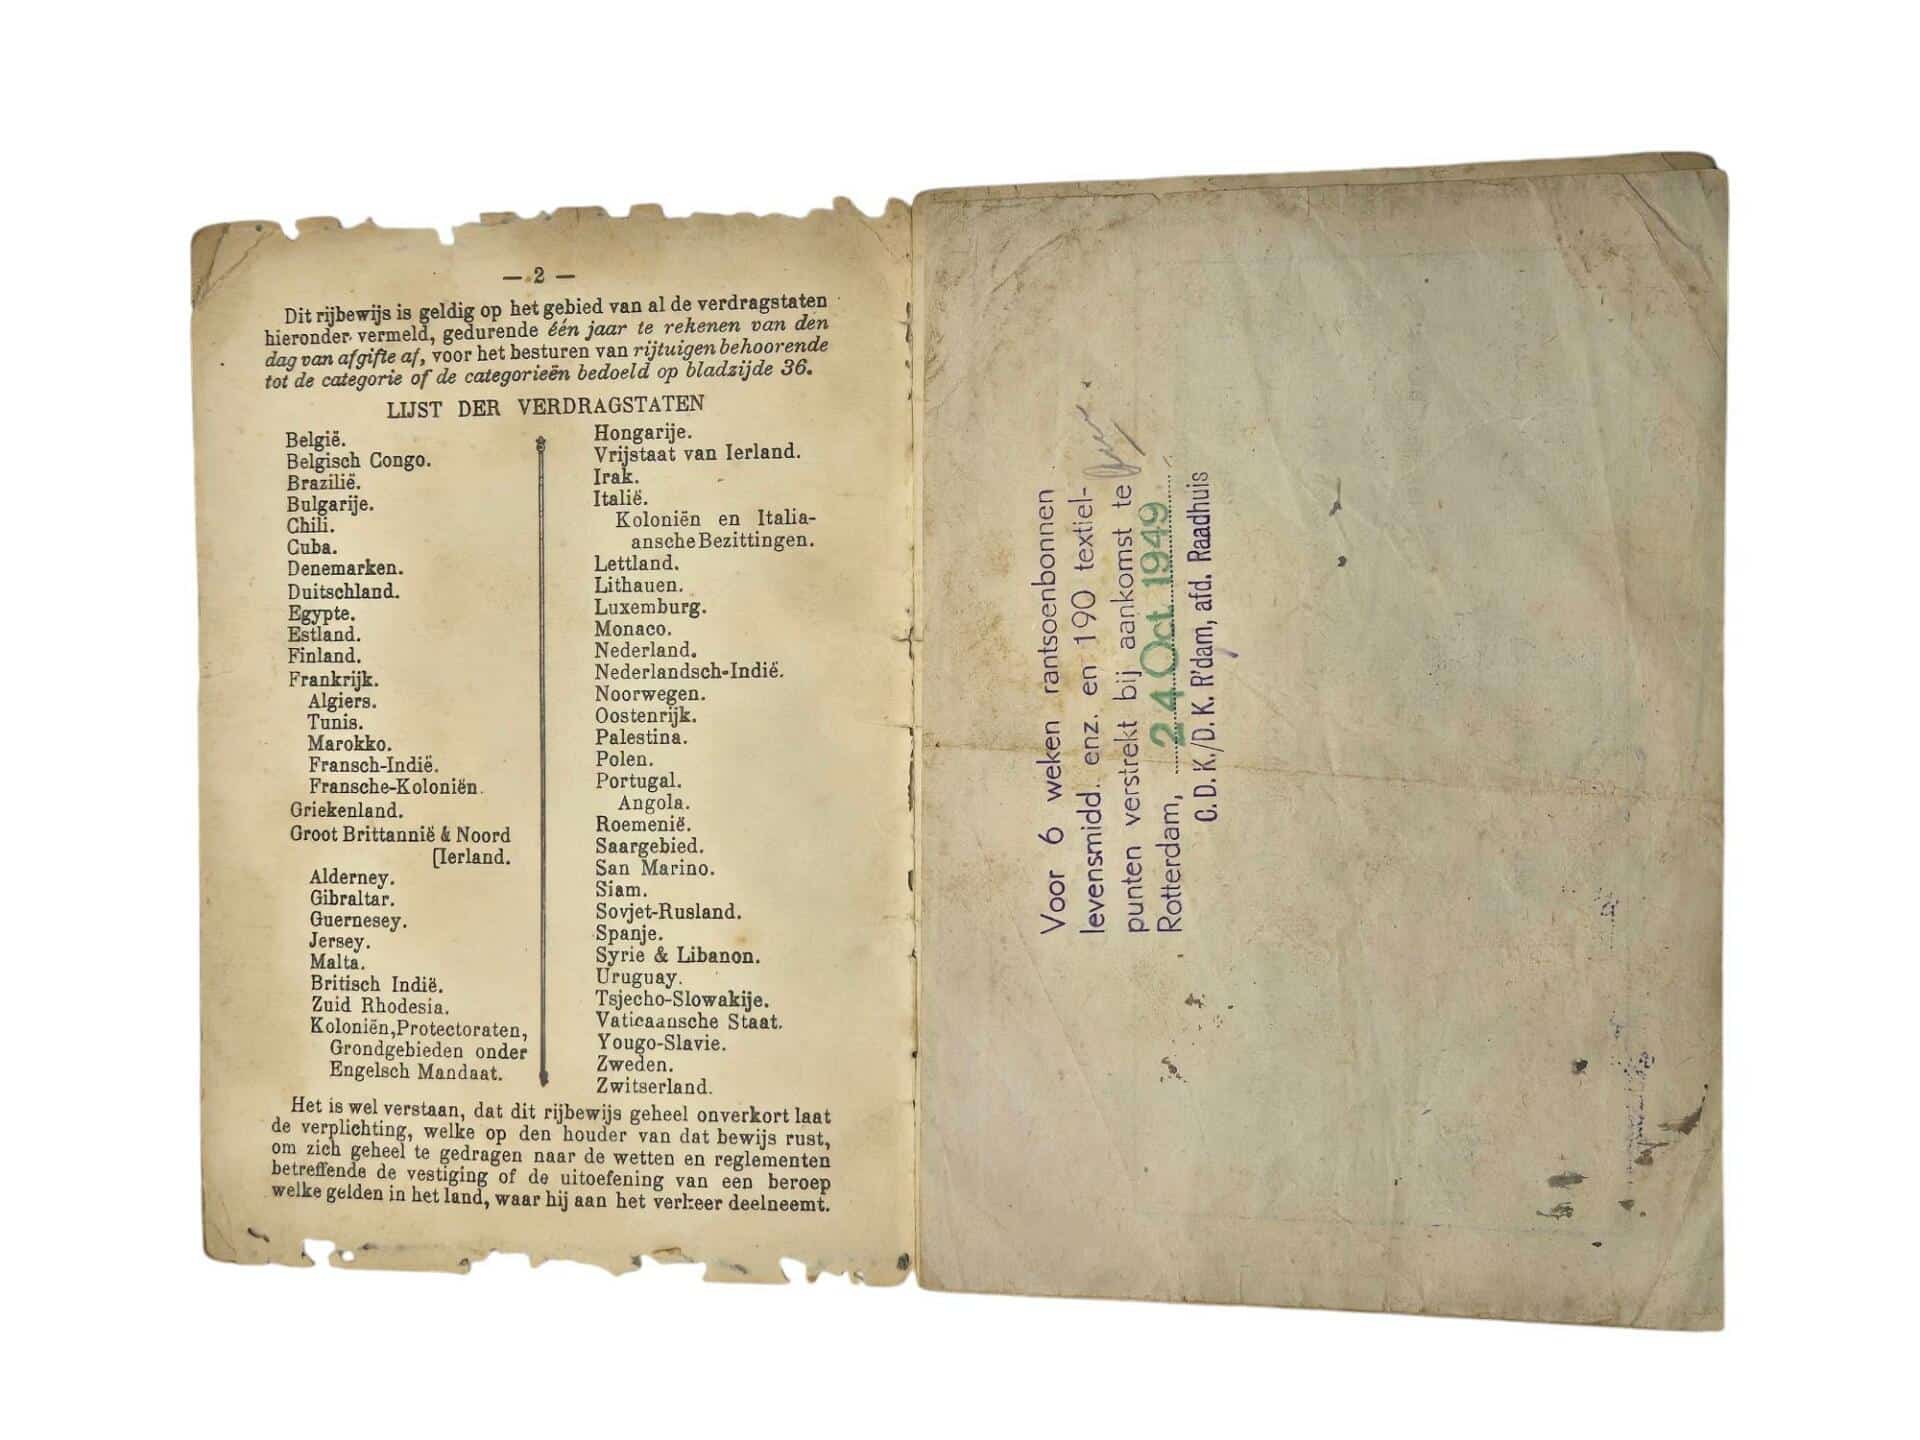 — 2 —
Dit rijbewijs is geldig op het gebied van al de verdragstaten
hieronder vermeld, gedurende één jaar te rekenen van den
dag van afgifte af, voor het besturen van rijtuigen behoorende
tot de categorie of de categorieën bedoeld op bladzijde 36.
LIJST DER VERDRAGSTATEN
België.
Belgisch Congo.
Brazilië.
Bulgarije.
Chili.
Cuba.
Denemarken.
Duitschland.
Egypte.
Estland.
Finland.
Frankrijk.
Algiers.
Tunis.
Marokko.
Fransch-Indië.
Fransche-Koloniën.
Griekenland.
Groot Brittannië & Noord
[Ierland.
Alderney.
Gibraltar.
Guernesey.
Jersey.
Malta.
Britisch Indië.
Zuid Rhodesia.
Koloniën, Protectoraten,
Grondgebieden onder
Engelsch Mandaat.
Hongarije.
Vrijstaat van Ierland.
Irak.
Italië.
Koloniën en Italia-
ansche Bezittingen.
Lettland.
Lithauen.
Luxemburg.
Monaco.
Nederland.
Nederlandsch-Indië.
Noorwegen.
Oostenrijk.
Palestina.
Polen.
Portugal.
Angola.
Roemenië.
Saargebied.
San Marino.
Siam.
Sovjet-Rusland.
Spanje.
Syrie & Libanon.
Uruguay.
Tsjecho-Slowakije.
Vaticaansche Staat.
Yougo-Slavie.
Zweden.
Zwitserland.
Het is wel verstaan, dat dit rijbewijs geheel onverkort laat
de verplichting, welke op den houder van dat bewijs rust,
om zich geheel te gedragen naar de wetten en reglementen
betreffende de vestiging of de uitoefening van een beroep
welke gelden in het land, waar hij aan het verkeer deelneemt.
Voor 6 weken rantsoenbonnen
levensmidd. enz. en 190 textiel-
punten verstrekt bij aankomst te
Rotterdam, 24 Oct. 1949
C. D. K./D. K. R'dam, afd. Raadhuis